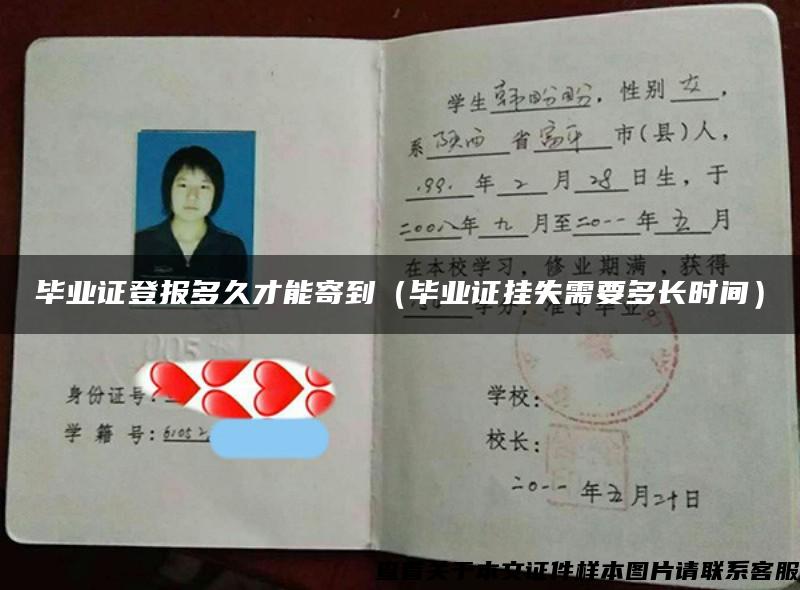 学生韩盼盼，性别女，
系陕西省富平市(县)人，
1991年2月28日生，于
二00八年九月至二0一一年五月
在本校学习，修业期满，获得
学分，准予毕业。
毕业证登报多久才能寄到（毕业证挂失需要多长时间）
005
身份证号：
学籍号：61052
学校：
校长：
二0一一年五月二十日
查看关于本文证件样本图片请联系客服